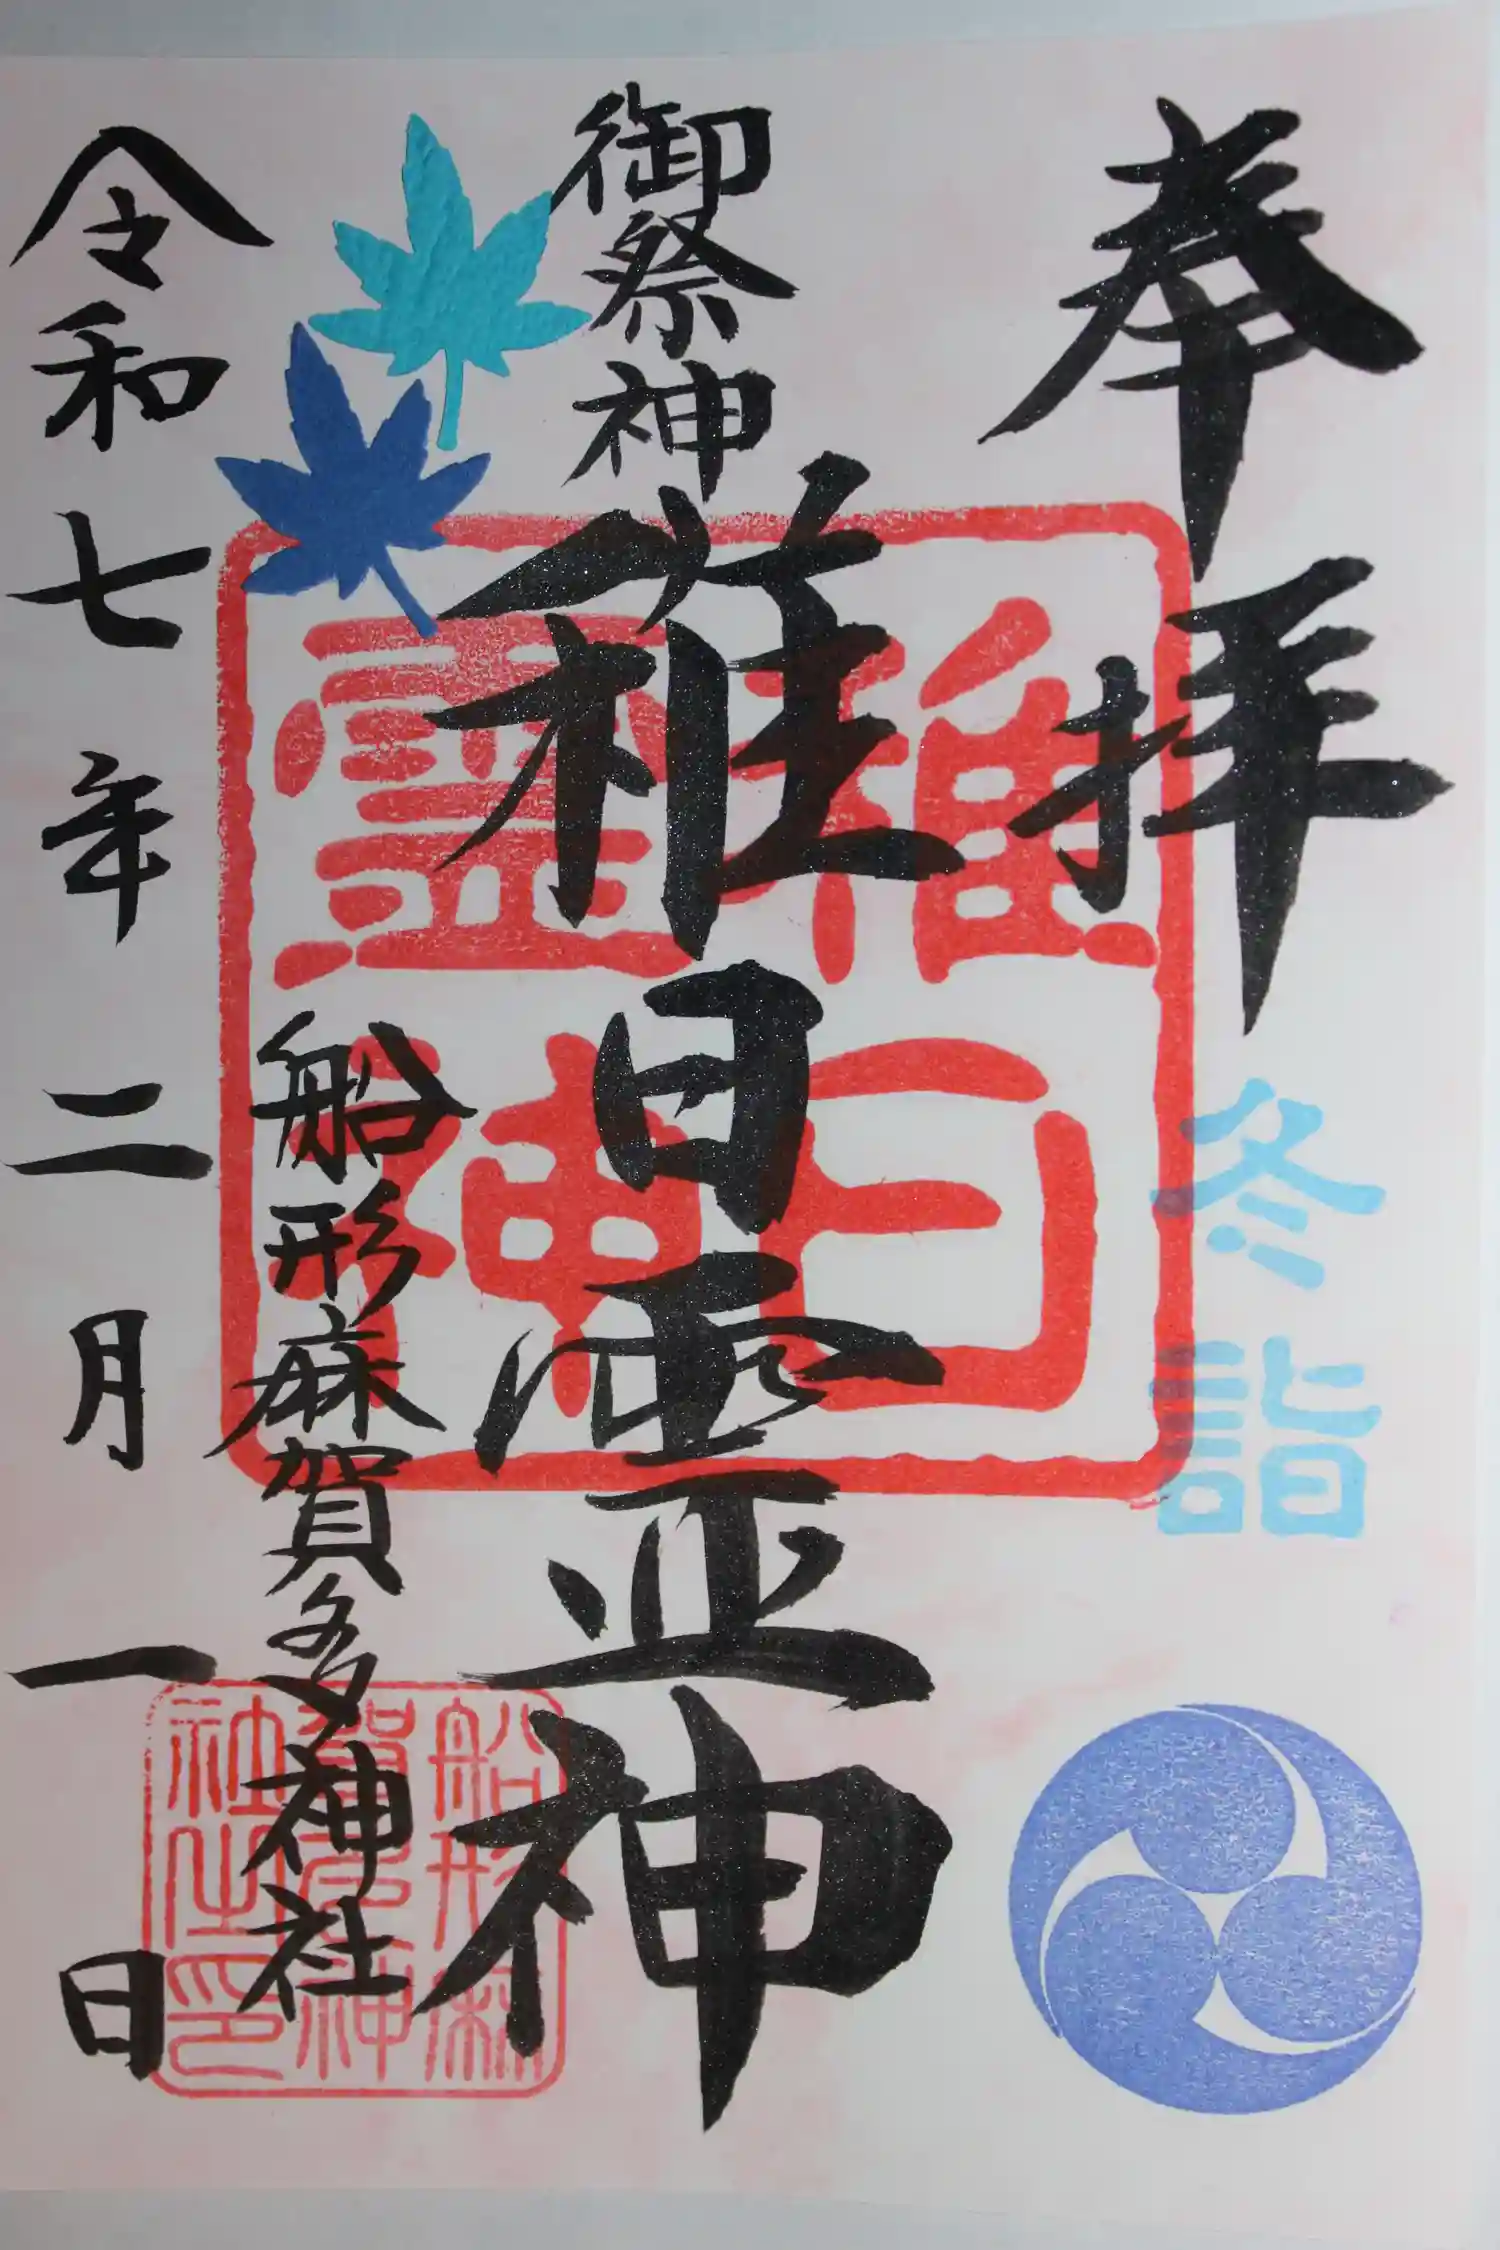 奉拝
冬詣
御祭神
稚日霊神
稚日霊神
船形麻賀多神社
船形麻賀多神社之印
令和七年二月一日